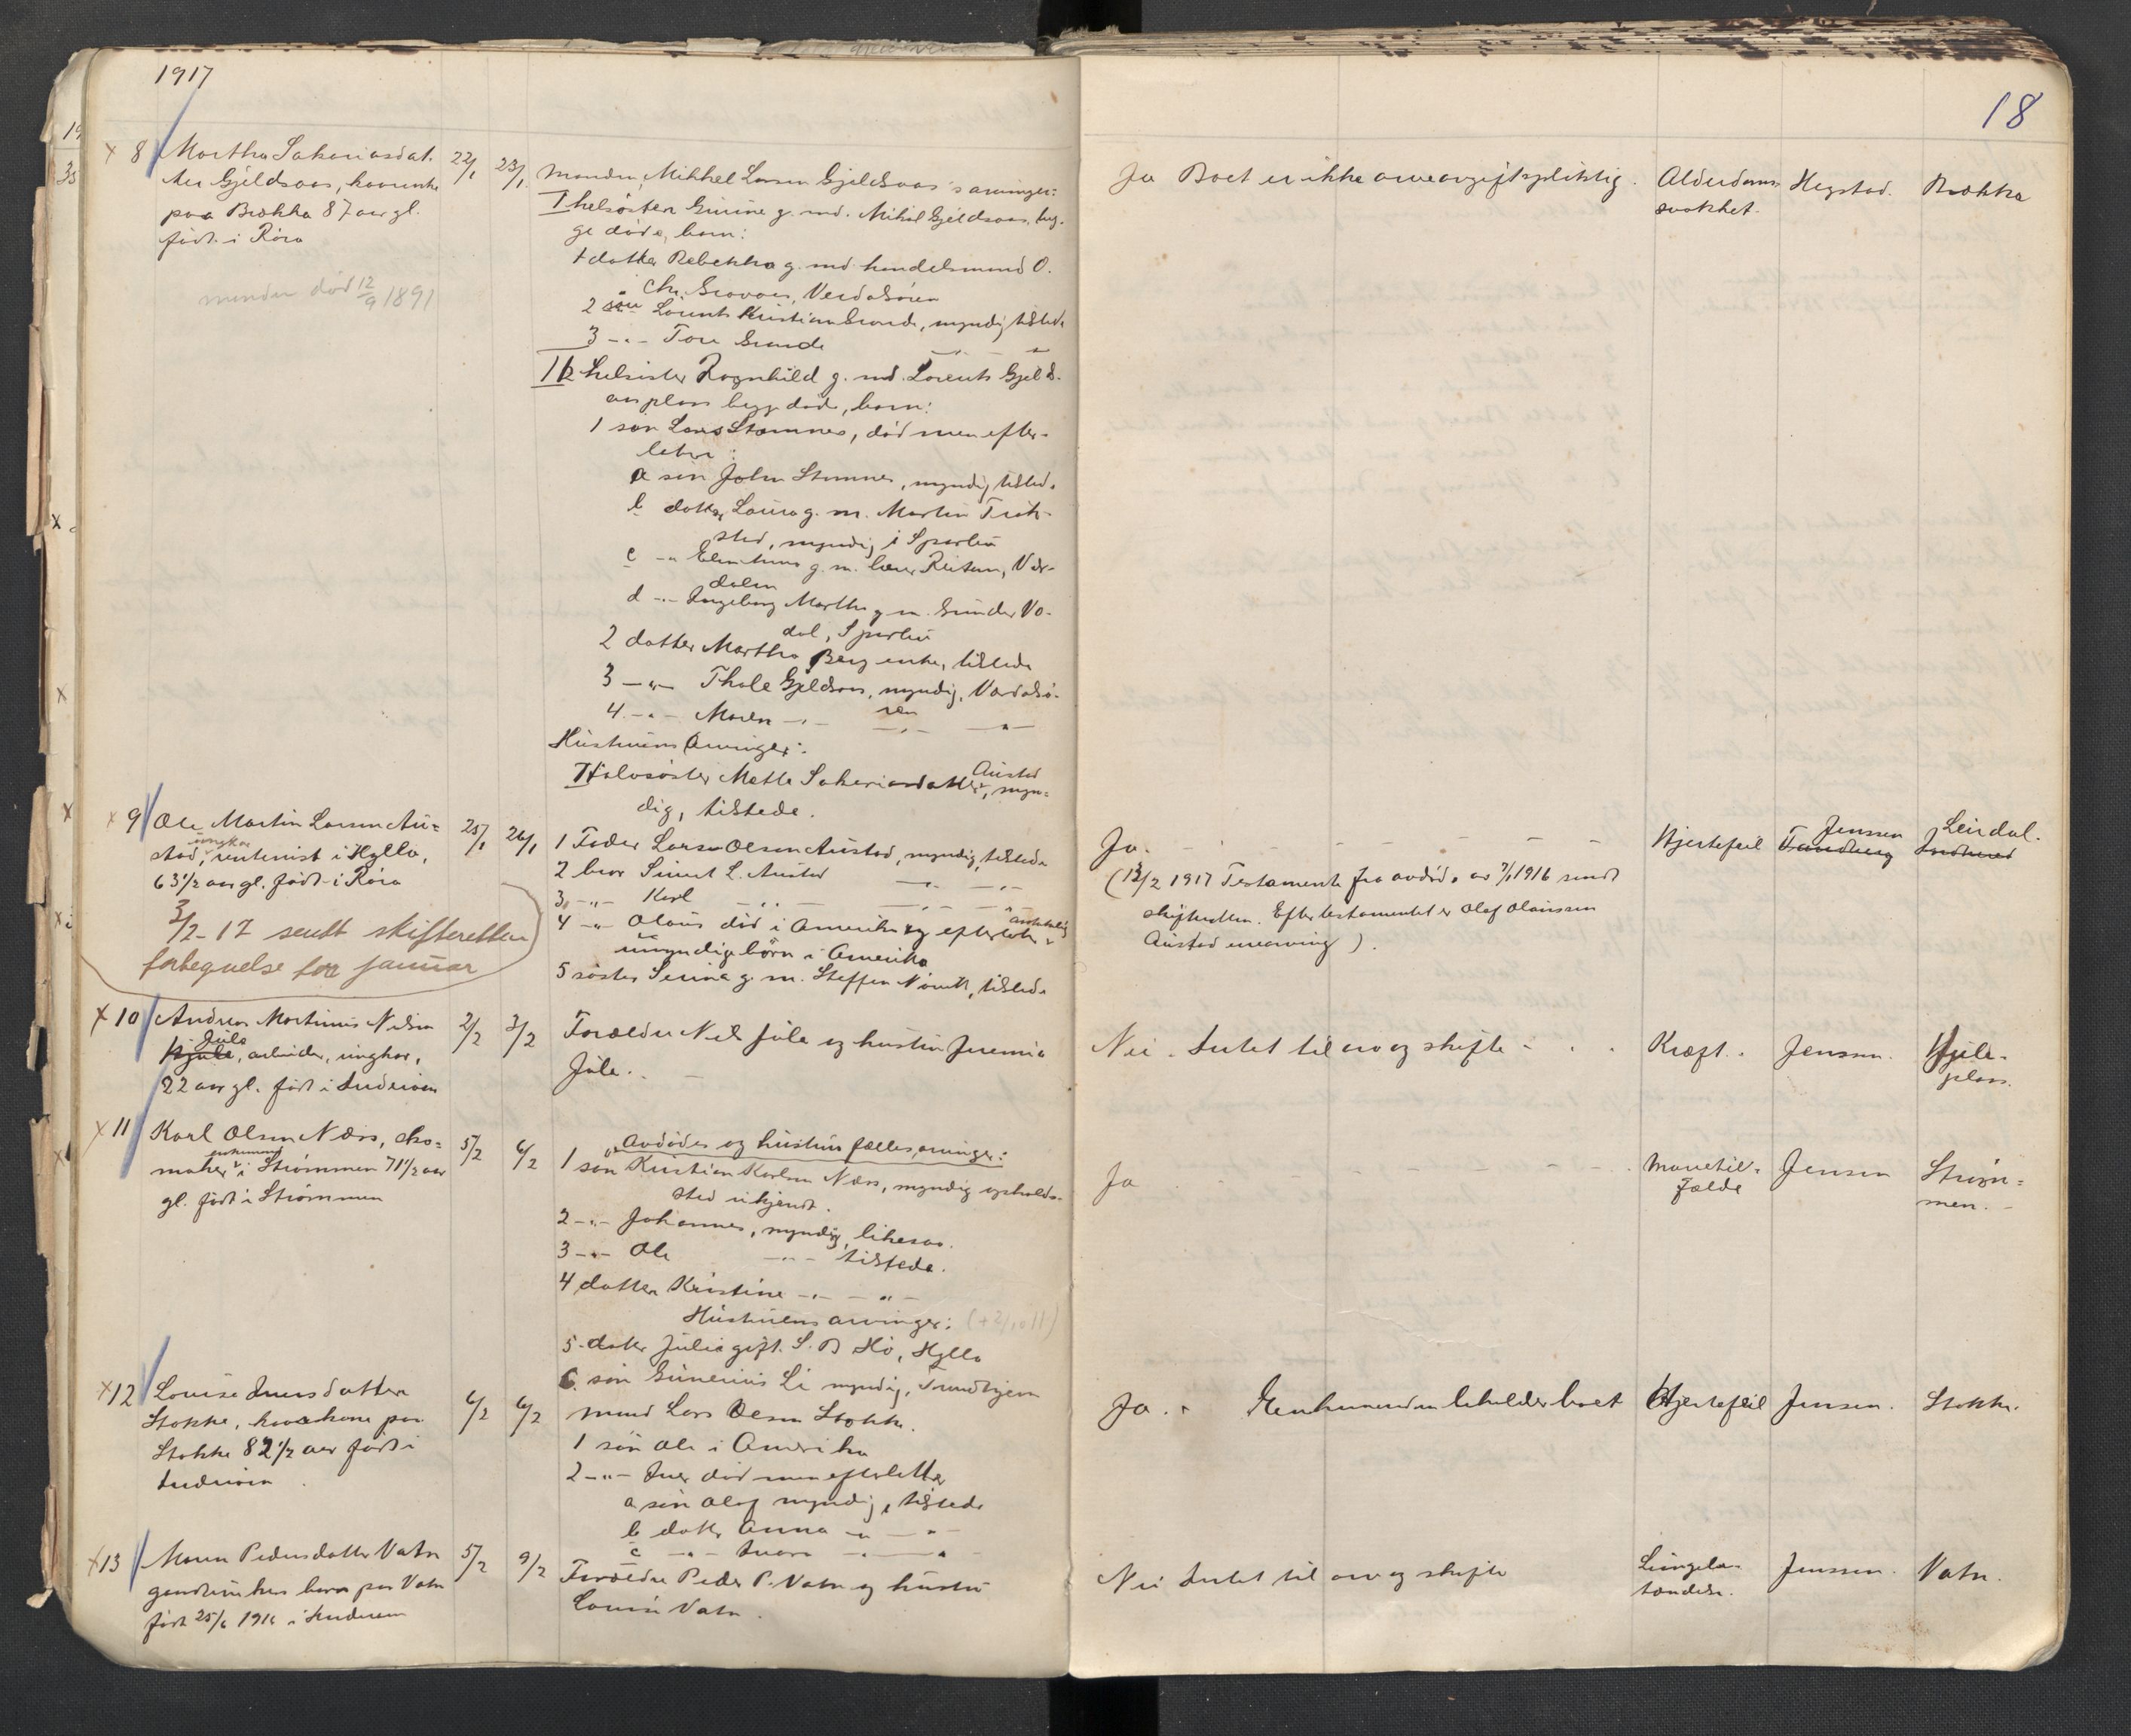 1917
18
x 8 Martha Sakariasdat-
ter Gjeldsaas, kaarenke
paa Brækka 87 aar gl.
født i Røra
manden død 12/9 1891
22/1 23/1
Manden, Mikkel Larsen Gjeldsaas's arvinger:
I helsøster Gurine g. md. Mikal Gjeldsaas, beg-
ge døde, barn:
1 datter Rebekka g. md handelsmand O.
Chr. Verdalsøren
2 søn Lorents Kristian Grande, myndig tilstede
3 -"- Tore Grande -"- "
II helsøster Ragnhild g. md. Lorents Gjelds-
aasplass begge døde, barn:
1 søn Lars Stamnes, død men efter-
later:
a søn John Stamnes, myndig, tilstede
b datter Laura g. m. Martin
sted, myndig i Sparbu
c -"- g. m. Lars Reitan, Vær-
dalen
d -"- Ingeborg Martha g. m. Gunder Vo-
dal, Sparbu
2 datter Martha Berg enke, tilstede
3 -"- Thale Gjeldsaas, myndig, Værdalsø-
ren
4 -"- Maren -"- -"- "
Hustruens arvinger:
I Halvsøster Mette Sakariasdatter Austad, myn-
dig, tilstede.
Ja Boet er ikke arveavgiftspliktig.
Alderdoms-
svakhet.
Hegstad.
Brækka
x 9 Ole Martin Larsen Au-
stad, ungkar rentenist i Hylla,
63 1/2 aar gl. født i Røra
3/2-17 sendt skifteretten
fortegnelse for januar
25/1 26/1
1 Fader Lars Olsen Austad, myndig, tilstede
2 bror Simert L. Austad -"- -"-
3 -"- Karl -"- -"- -"-
4 -"- Olaus død i Amerika og efterlater antakelig
umyndige børn i Amerika
5 søster Serina g. m. Steffen, tilstede
Ja. - - - - -
(13/2 1917 Testamente fra avdøde av 7/1 1916 sendt
skifteretten. Efter testamentet er Olaf Olaussen
Austad enearving).
Hjertefeil
Jenssen
Tandberg
Leirdal.
x 10 Andreas Martinus Nilsen
Jule
Hjule, arbeider, ungkar,
22 aar gl. født i Inderøen
2/2 3/2
Forældre Nils Jule og hustru Jeremia
Jule.
Nei. Intet til arv og skifte - . .
Kræft.
Jenssen.
Hjule-
plass.
x 11 Karl Olsen Næss, sko-
maker, enkemand i Strømmen 71 1/2 aar
gl. født i Strømmen
5/2 6/2
Avdødes og hustrus fællesarvinger:
1 søn Kristian Karlsen Næss, myndig opholds-
sted ukjendt.
2 -"- Johannes, myndig, likesaa.
3 -"- Ole -"- tilstede.
4 datter Kristine -"- -"-
Hustruens arvinger:
5 datter Julia gift. S. B Hø, Hylla
6. søn Gunerius Li myndig, Trondhjem
Ja - - - - -
Mavetil-
fælde
Jenssen
Strøm-
men.
x 12 Louise Iversdatter
Stokke, kaarkone paa
Stokke 82 1/2 aar født i
Inderøen
6/2 6/2
Mand Lars Olsen Stokke.
1 søn Ole i Amerika
2 -"- Iver død men efterlatter
a søn Olaf myndig, tilstede
b datter Anna -"- -"-
c -"- Ivara -"- "
Ja. Enkemanden beholder boet
Hjertefeil
Jenssen.
Stokke.
x 13 Maren Pedersdatter Vatn
gaardbrukers barn paa Vatn
født 25/6 1916 i Inderøen
5/2 9/2
Forældre Peder P. Vatn og hustru
Louise Vatn.
Nei Intet til arv og skifte
Lungebe-
tændelse.
Jenssen.
Vatn.